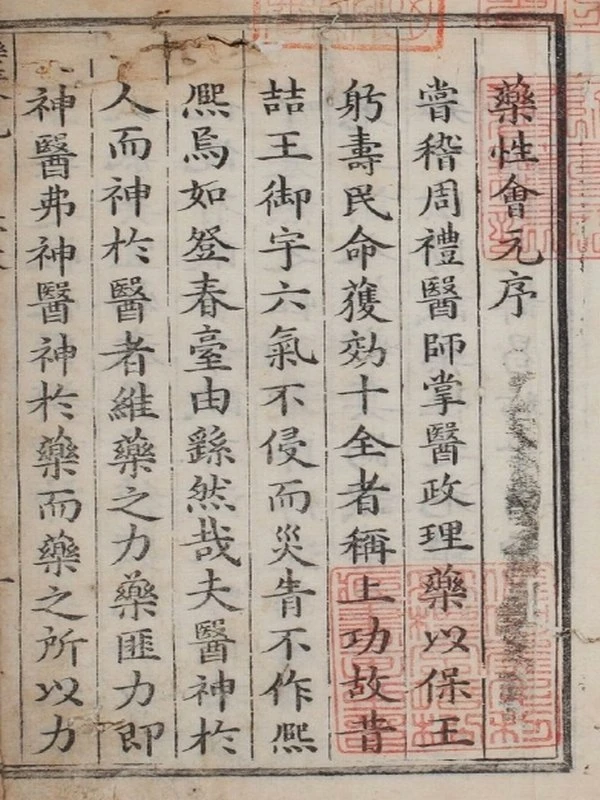 藥性會元序
嘗稽周禮醫師掌醫政理藥以保王
躬壽民命獲効十全者稱上功故昔
喆王御宇六氣不侵而災眚不作熙
熙焉如登春臺由繇然哉夫醫神於
人而神於醫者維藥之力藥匪力即
神醫弗神醫神於藥而藥之所以力